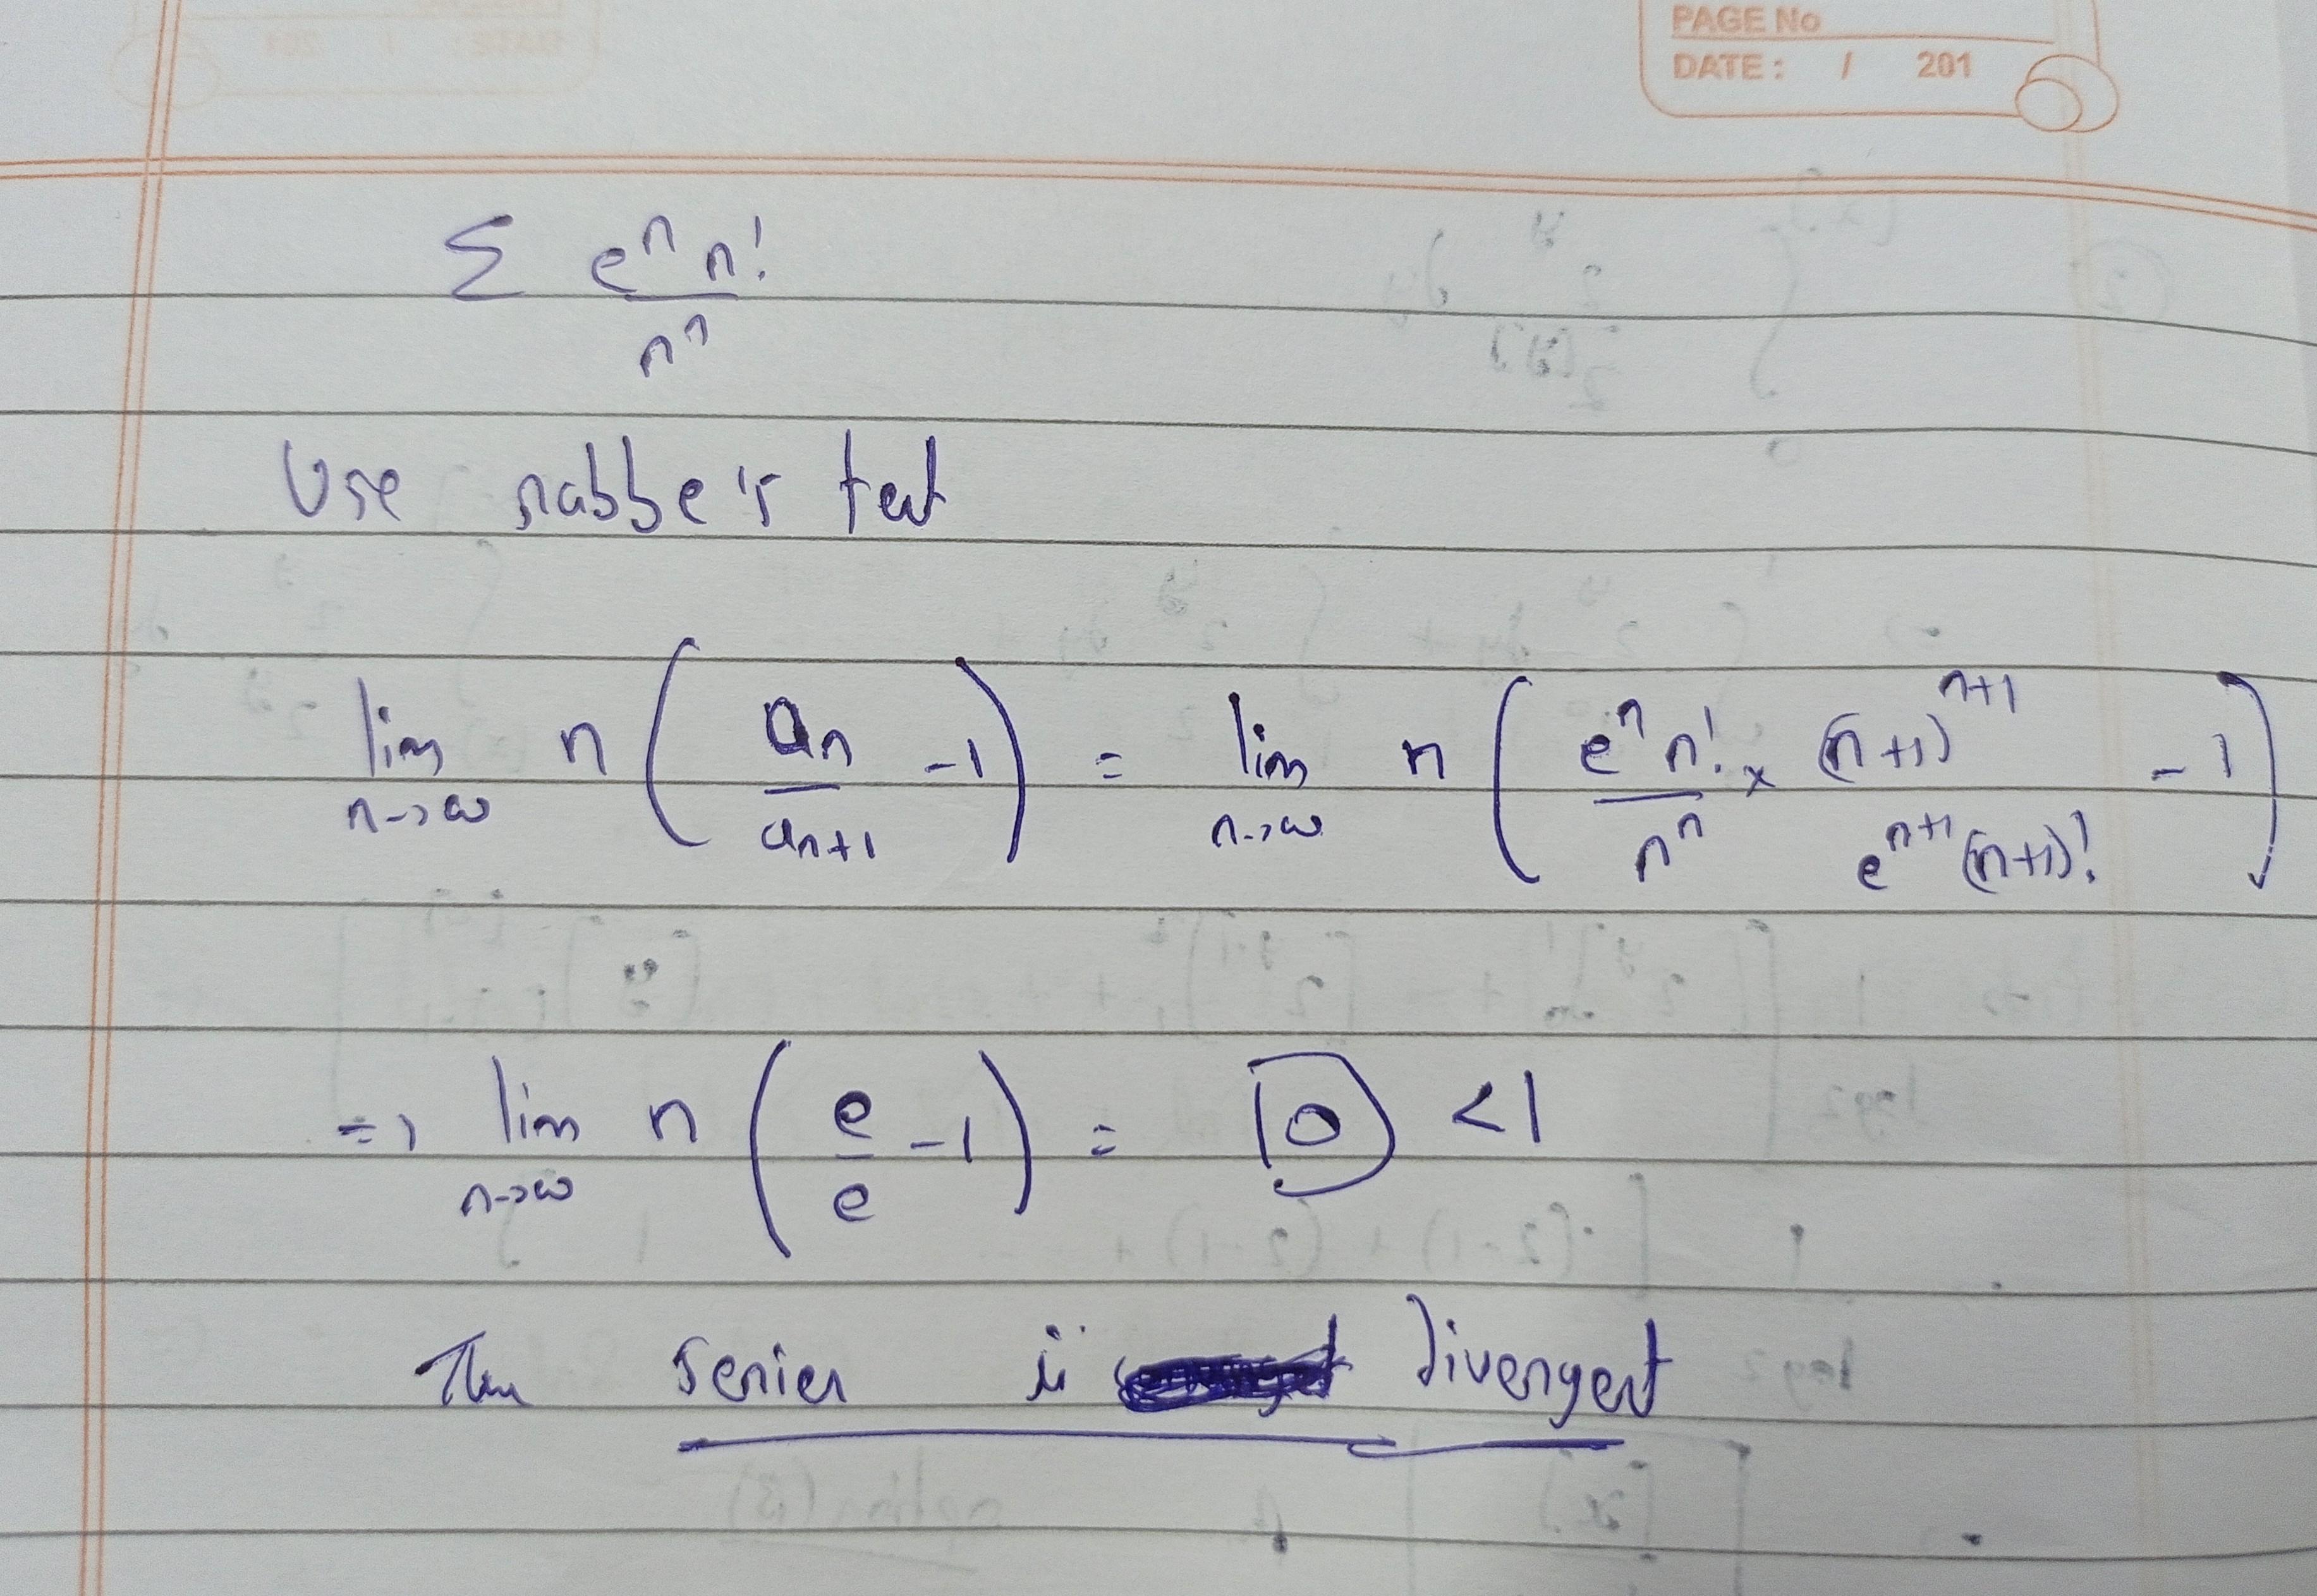 PAGE No
DATE : / 201
Σ eⁿ n! / nⁿ
Use rabbe's test
lim n→∞ n ( aₙ / aₙ₊₁ - 1 ) = lim n→∞ n ( eⁿ n! / nⁿ × (n+1)ⁿ⁺¹ / eⁿ⁺¹ (n+1)! - 1 )
=> lim n→∞ n ( e / e - 1 ) = 0 < 1
The series is divergent